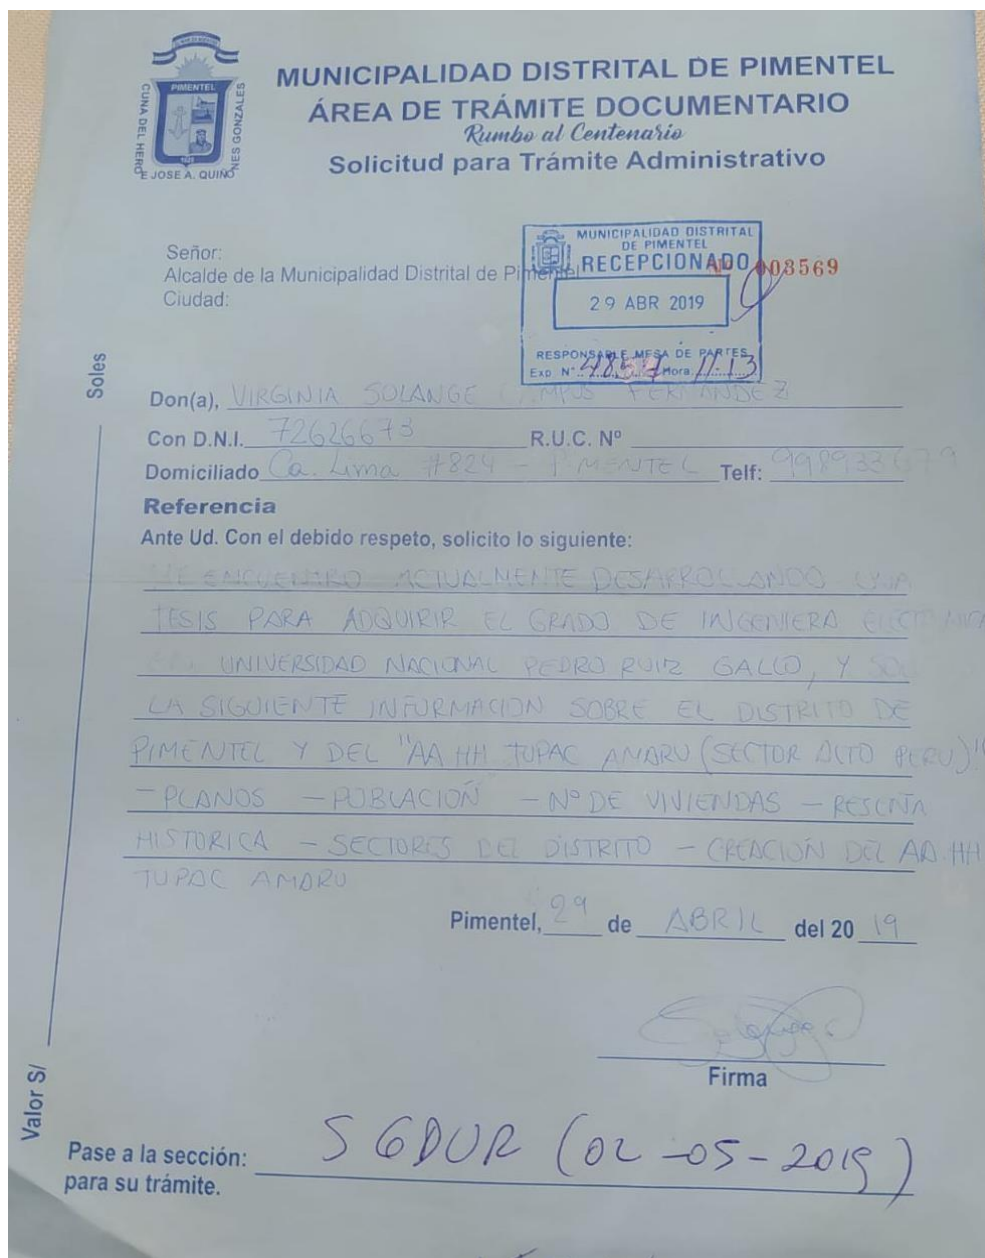 PIMENTEL
CUNA DEL HEROE JOSE A. QUIÑONES GONZALES
MUNICIPALIDAD DISTRITAL DE PIMENTEL
ÁREA DE TRÁMITE DOCUMENTARIO
Rumbo al Centenario
Solicitud para Trámite Administrativo
Señor:
Alcalde de la Municipalidad Distrital de Pimentel
Ciudad:
MUNICIPALIDAD DISTRITAL
DE PIMENTEL
RECEPCIONADO
003569
29 ABR 2019
RESPONSABLE MESA DE PARTES
Exp. N° Hora 11-13
Soles
Don(a), VIRGINIA SOLANGE FERNANDEZ
Con D.N.I. 72626673 R.U.C. Nº
Domiciliado Ca. Lima #824 - PIMENTEL Telf: 998933679
Referencia
Ante Ud. Con el debido respeto, solicito lo siguiente:
ME ENCUENTRO ACTUALMENTE DESARROLLANDO UNA
TESIS PARA ADQUIRIR EL GRADO DE INGENIERA
UNIVERSIDAD NACIONAL PEDRO RUIZ GALLO, Y
LA SIGUIENTE INFORMACION SOBRE EL DISTRITO DE
PIMENTEL Y DEL "AA HH TUPAC AMARU (SECTOR ALTO PERU)"
- PLANOS - POBLACIÓN - Nº DE VIVIENDAS - RESEÑA
HISTORICA - SECTORES DEL DISTRITO - CREACIÓN DEL AA.HH
TUPAC AMARU
Pimentel, 29 de ABRIL del 20 19
Firma
Valor S/
Pase a la sección: SGDUR (02-05-2019)
para su trámite.